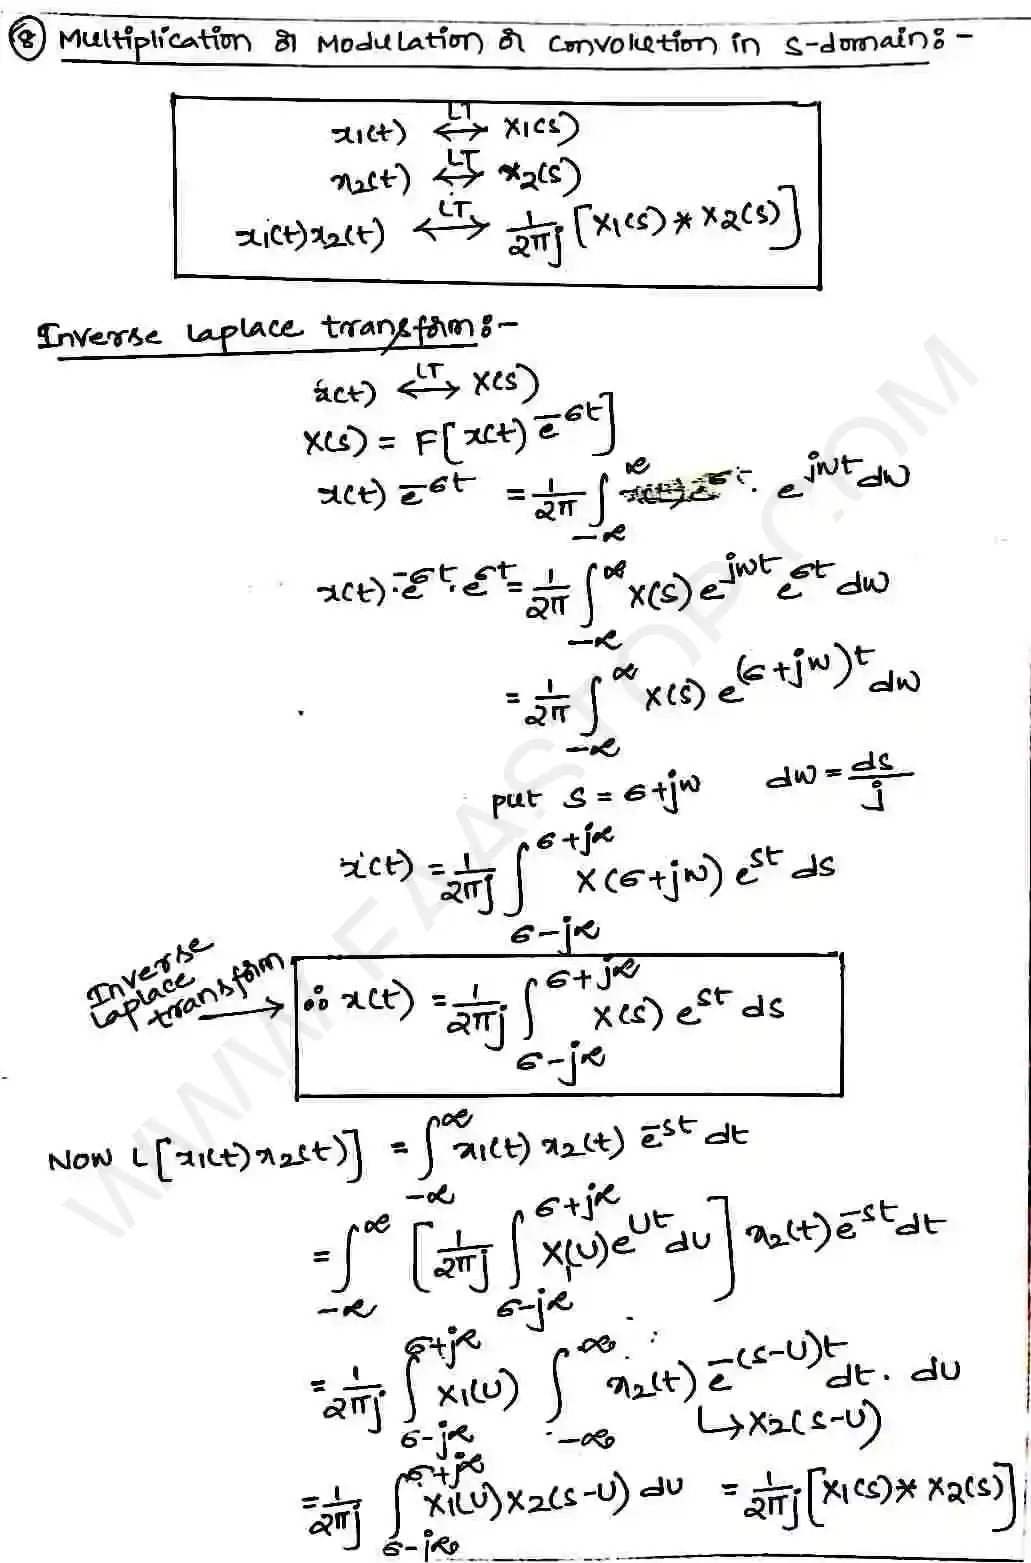 ⑧ Multiplication or Modulation or Convolution in s-domain:-
x1(t) <-LT-> X1(s)
x2(t) <-LT-> X2(s)
x1(t)x2(t) <-LT-> 1/2πj [X1(s) * X2(s)]
Inverse laplace transform:-
x(t) <-LT-> X(s)
X(s) = F[x(t) e^-σt]
x(t) e^-σt = 1/2π ∫_-∞^∞ e^jωt dω
x(t)·e^-σt·e^σt = 1/2π ∫_-∞^∞ X(s) e^jωt e^σt dω
= 1/2π ∫_-∞^∞ X(s) e^(σ+jω)t dω
put s = σ+jω dω = ds/j
x(t) = 1/2πj ∫_σ-j∞^σ+j∞ X(σ+jω) e^st ds
Inverse
Laplace
transform →
∴ x(t) = 1/2πj ∫_σ-j∞^σ+j∞ X(s) e^st ds
Now L[x1(t)x2(t)] = ∫_-∞^∞ x1(t) x2(t) e^-st dt
= ∫_-∞^∞ [1/2πj ∫_σ-j∞^σ+j∞ X1(U)e^Ut dU] x2(t)e^-st dt
= 1/2πj ∫_σ-j∞^σ+j∞ X1(U) ∫_-∞^∞ x2(t) e^-(s-U)t dt. dU
↳X2(s-U)
= 1/2πj ∫_σ-j∞^σ+j∞ X1(U)X2(s-U) dU = 1/2πj [X1(s)* X2(s)]
WWW.FAASTOP.COM